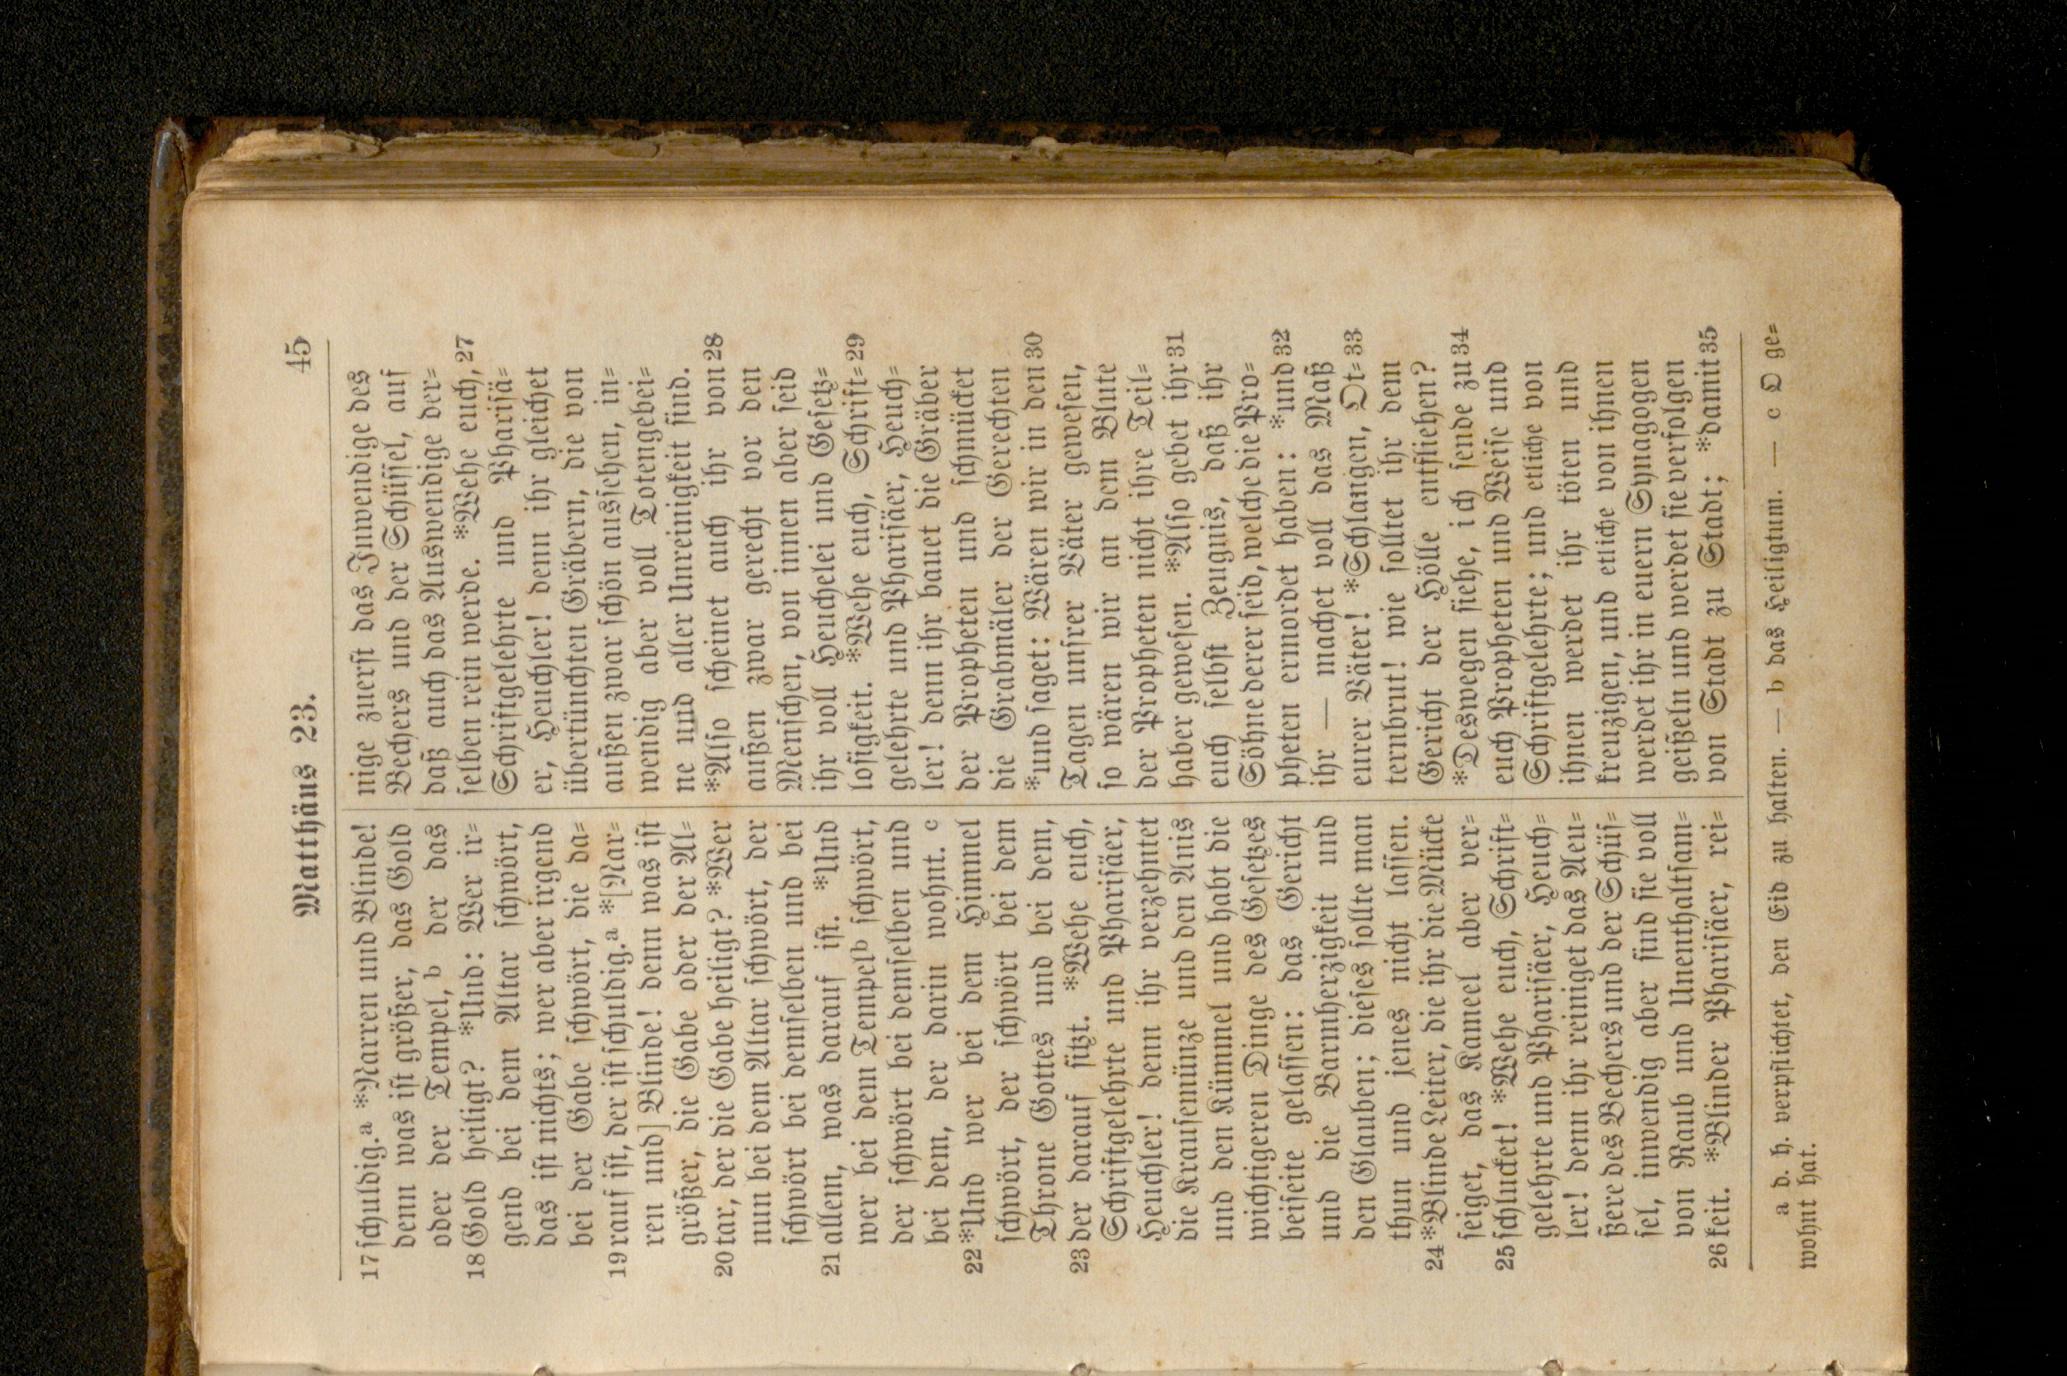 Matthäus 23. 45
17 schuldig.a *Narren und Blinde!
denn was ist größer, das Gold
oder der Tempel, b der das
18 Gold heiligt? *Und: Wer ir=
gend bei dem Altar schwört,
das ist nichts; wer aber irgend
bei der Gabe schwört, die da=
19 rauf ist, der ist schuldig.a *[Nar=
ren und] Blinde! denn was ist
größer, die Gabe oder der Al=
20 tar, der die Gabe heiligt? *Wer
nun bei dem Altar schwört, der
schwört bei demselben und bei
21 allem, was darauf ist. *Und
wer bei dem Tempel b schwört,
der schwört bei demselben und
bei dem, der darin wohnt. c
22 *Und wer bei dem Himmel
schwört, der schwört bei dem
Throne Gottes und bei dem,
23 der darauf sitzt. *Wehe euch,
Schriftgelehrte und Pharisäer,
Heuchler! denn ihr verzehntet
die Krausemünze und den Anis
und den Kümmel und habt die
wichtigeren Dinge des Gesetzes
beiseite gelassen: das Gericht
und die Barmherzigkeit und
den Glauben; dieses sollte man
thun und jenes nicht lassen.
24 *Blinde Leiter, die ihr die Mücke
seiget, das Kameel aber ver=
25 schlucket! *Wehe euch, Schrift=
gelehrte und Pharisäer, Heuch=
ler! denn ihr reiniget das Aeu=
ßere des Bechers und der Schüs=
sel, inwendig aber sind sie voll
von Raub und Unenthaltsam=
26 keit. *Blinder Pharisäer, rei=
nige zuerst das Inwendige des
Bechers und der Schüssel, auf
daß auch das Auswendige der=
selben rein werde. *Wehe euch, 27
Schriftgelehrte und Pharisä=
er, Heuchler! denn ihr gleichet
übertünchten Gräbern, die von
außen zwar schön aussehen, in=
wendig aber voll Totengebei=
ne und aller Unreinigkeit sind.
*Also scheinet auch ihr von 28
außen zwar gerecht vor den
Menschen, von innen aber seid
ihr voll Heuchelei und Gesetz=
losigkeit. *Wehe euch, Schrift= 29
gelehrte und Pharisäer, Heuch=
ler! denn ihr bauet die Gräber
der Propheten und schmücket
die Grabmäler der Gerechten
*und saget: Wären wir in den 30
Tagen unsrer Väter gewesen,
so wären wir an dem Blute
der Propheten nicht ihre Teil=
haber gewesen. *Also gebet ihr 31
euch selbst Zeugnis, daß ihr
Söhne derer seid, welche die Pro=
pheten ermordet haben: *und 32
ihr — machet voll das Maß
eurer Väter! *Schlangen, Ot= 33
ternbrut! wie solltet ihr dem
Gericht der Hölle entfliehen?
*Deswegen siehe, ich sende zu 34
euch Propheten und Weise und
Schriftgelehrte; und etliche von
ihnen werdet ihr töten und
kreuzigen, und etliche von ihnen
werdet ihr in euern Synagogen
geißeln und werdet sie verfolgen
von Stadt zu Stadt; *damit 35
a d. h. verpflichtet, den Eid zu halten. — b das Heiligtum. — c O ge=
wohnt hat.